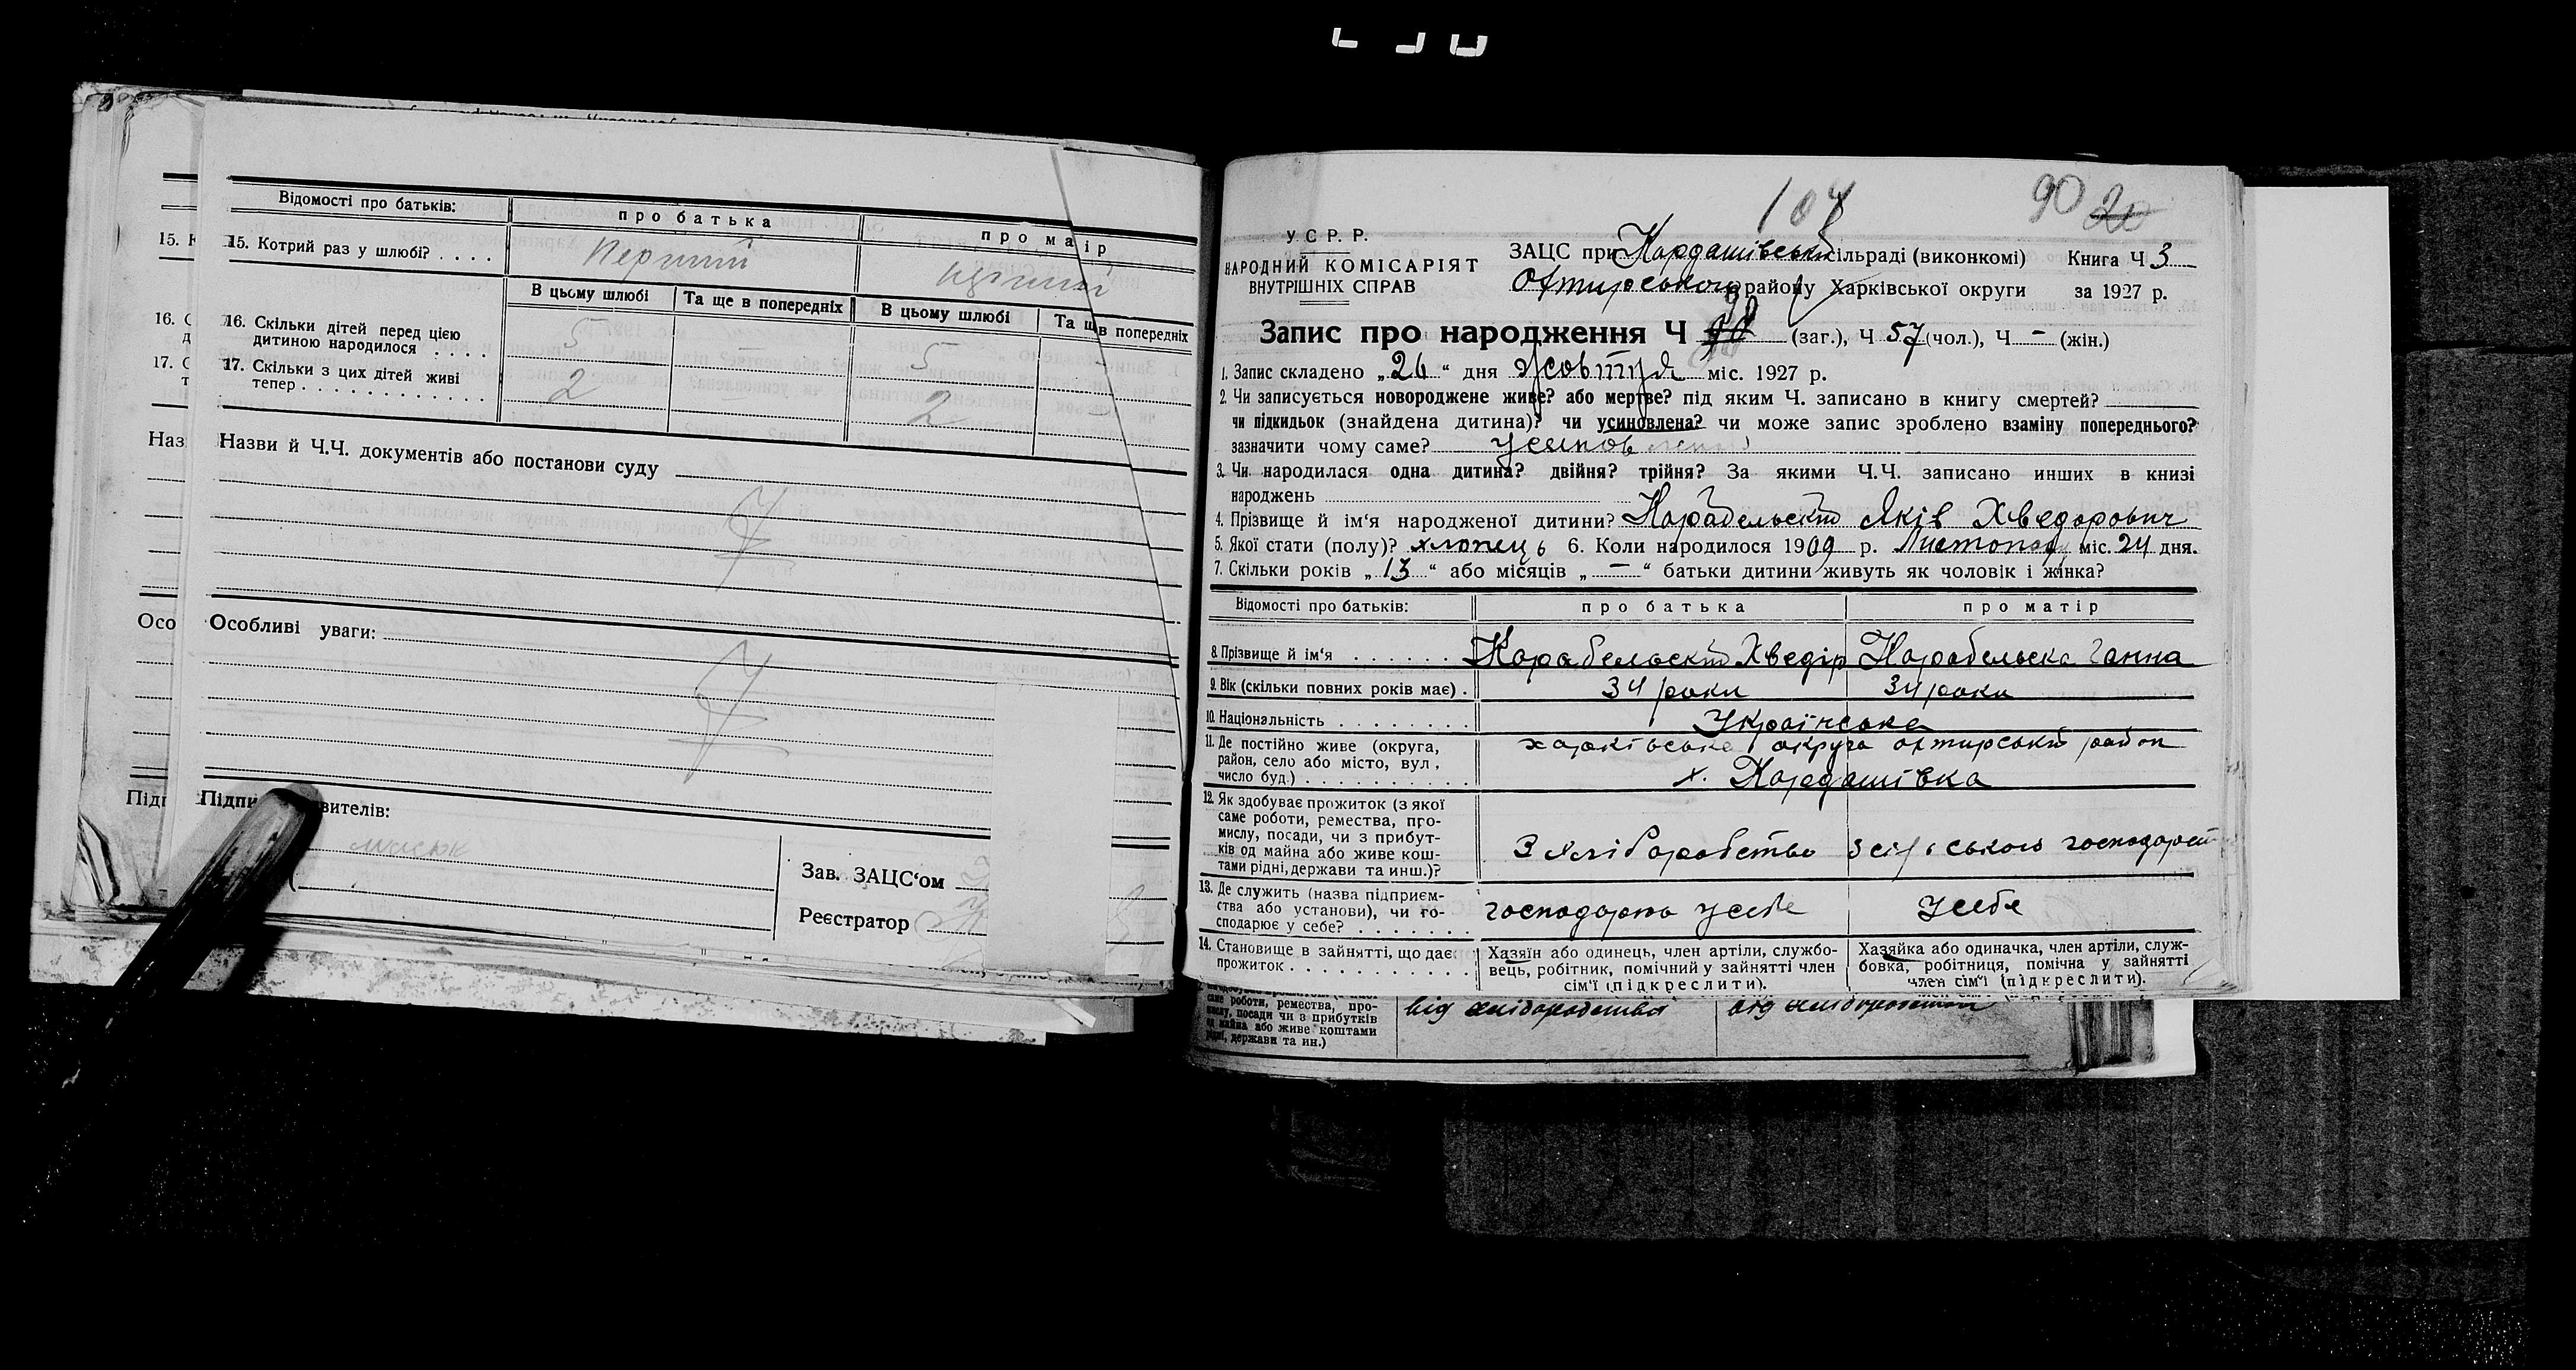 Відомості про батьків: про батька про маір
15. К 15. Котрий раз у шлюбі? . . . . Перший
В цьому шлюбі Та ще в попередніх В цьому шлюбі Та щ в попередніх
16. С 16. Скільки дітей перед цією
д дитиною народилося . . . . 5 — 5 —
17. С 17. Скільки з цих дітей живі
т тепер . . . . . . . . . . . . . 2 — 2 —
Наз Назви й Ч.Ч. документів або постанови суду
Осо Особливі уваги:
Підп Підпи вителів:
Зав. ЗАЦС‘ом
Реєстратор
104 90 20
У. С. Р. Р.
НАРОДНИЙ КОМІСАРІЯТ
ВНУТРІШНІХ СПРАВ
ЗАЦС при Кардашівській сільраді (виконкомі) Книга Ч 3
Охтирського району Харківської округи за 1927 р.
90
Запис про народження Ч 90 (заг.), Ч 57 (чол.), Ч — (жін.)
1. Запис складено „26“ дня жовтня міс. 1927 р.
2. Чи записується новороджене живе? або мертве? під яким Ч. записано в книгу смертей?
чи підкидьок (знайдена дитина)? чи усиновлена? чи може запис зроблено взаміну попереднього?
зазначити чому саме?
3. Чи народилася одна дитина? двійня? трійня? За якими Ч.Ч. записано инших в книзі
народжень
4. Прізвище й ім‘я народженої дитини? Карабельскій Яків Хведорович
5. Якої стати (полу)? хлопець 6. Коли народилося 1909 р. Листопад міс. 24 дня.
7. Скільки років „13“ або місяців „—“ батьки дитини живуть як чоловік і жінка?
Відомості про батьків: про батька про матір
8. Прізвище й ім‘я . . . . . . . Карабельскій Хведір Карабельска Ганна
9. Вік (скільки повних років має) . 34 роки 34 роки
10. Національність . . . . . . . . Українська
11. Де постійно живе (округа, харківська округа охтирській район
район, село або місто, вул.,
число буд.) . . . . . . . . . . х. Кардашівка
12. Як здобуває прожиток (з якої
саме роботи, ремества, про-
мислу, посади, чи з прибут-
ків од майна або живе кош- З хліборобства з сільського господарст
тами рідні, держави та инш.)?
13. Де служить (назва підприєм-
ства або установи), чи го- господарює у себе у себе
сподарює у себе? . . . . . . .
14. Становище в зайнятті, що дає
прожиток . . . . . . . . . . .
Хазяїн або одинець, член артіли, службо-
вець, робітник, помічний у зайнятті член
сім‘ї (підкреслити).
Хазяйка або одиначка, член артіли, служ-
бовка, робітниця, помічна у зайнятті
член сім‘ї (підкреслити).
саме роботи, ремества, про- від хліборобства від хліборобства
мислу, посади чи з прибутків
од майна або живе коштами
рідні, держави та ин.)